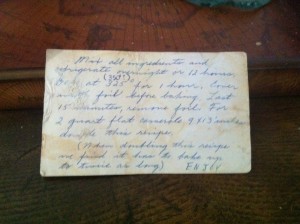 Mix all ingredients and
refrigerate overnight or 12 hours.
(350°)
at 325° for 1 hour, cover
foil before baking. Last
15 minutes, remove foil. For
2 quart casserole, 9 x 13 
double this recipe.
(When doubling this recipe
we find it has to bake up
to twice as long)